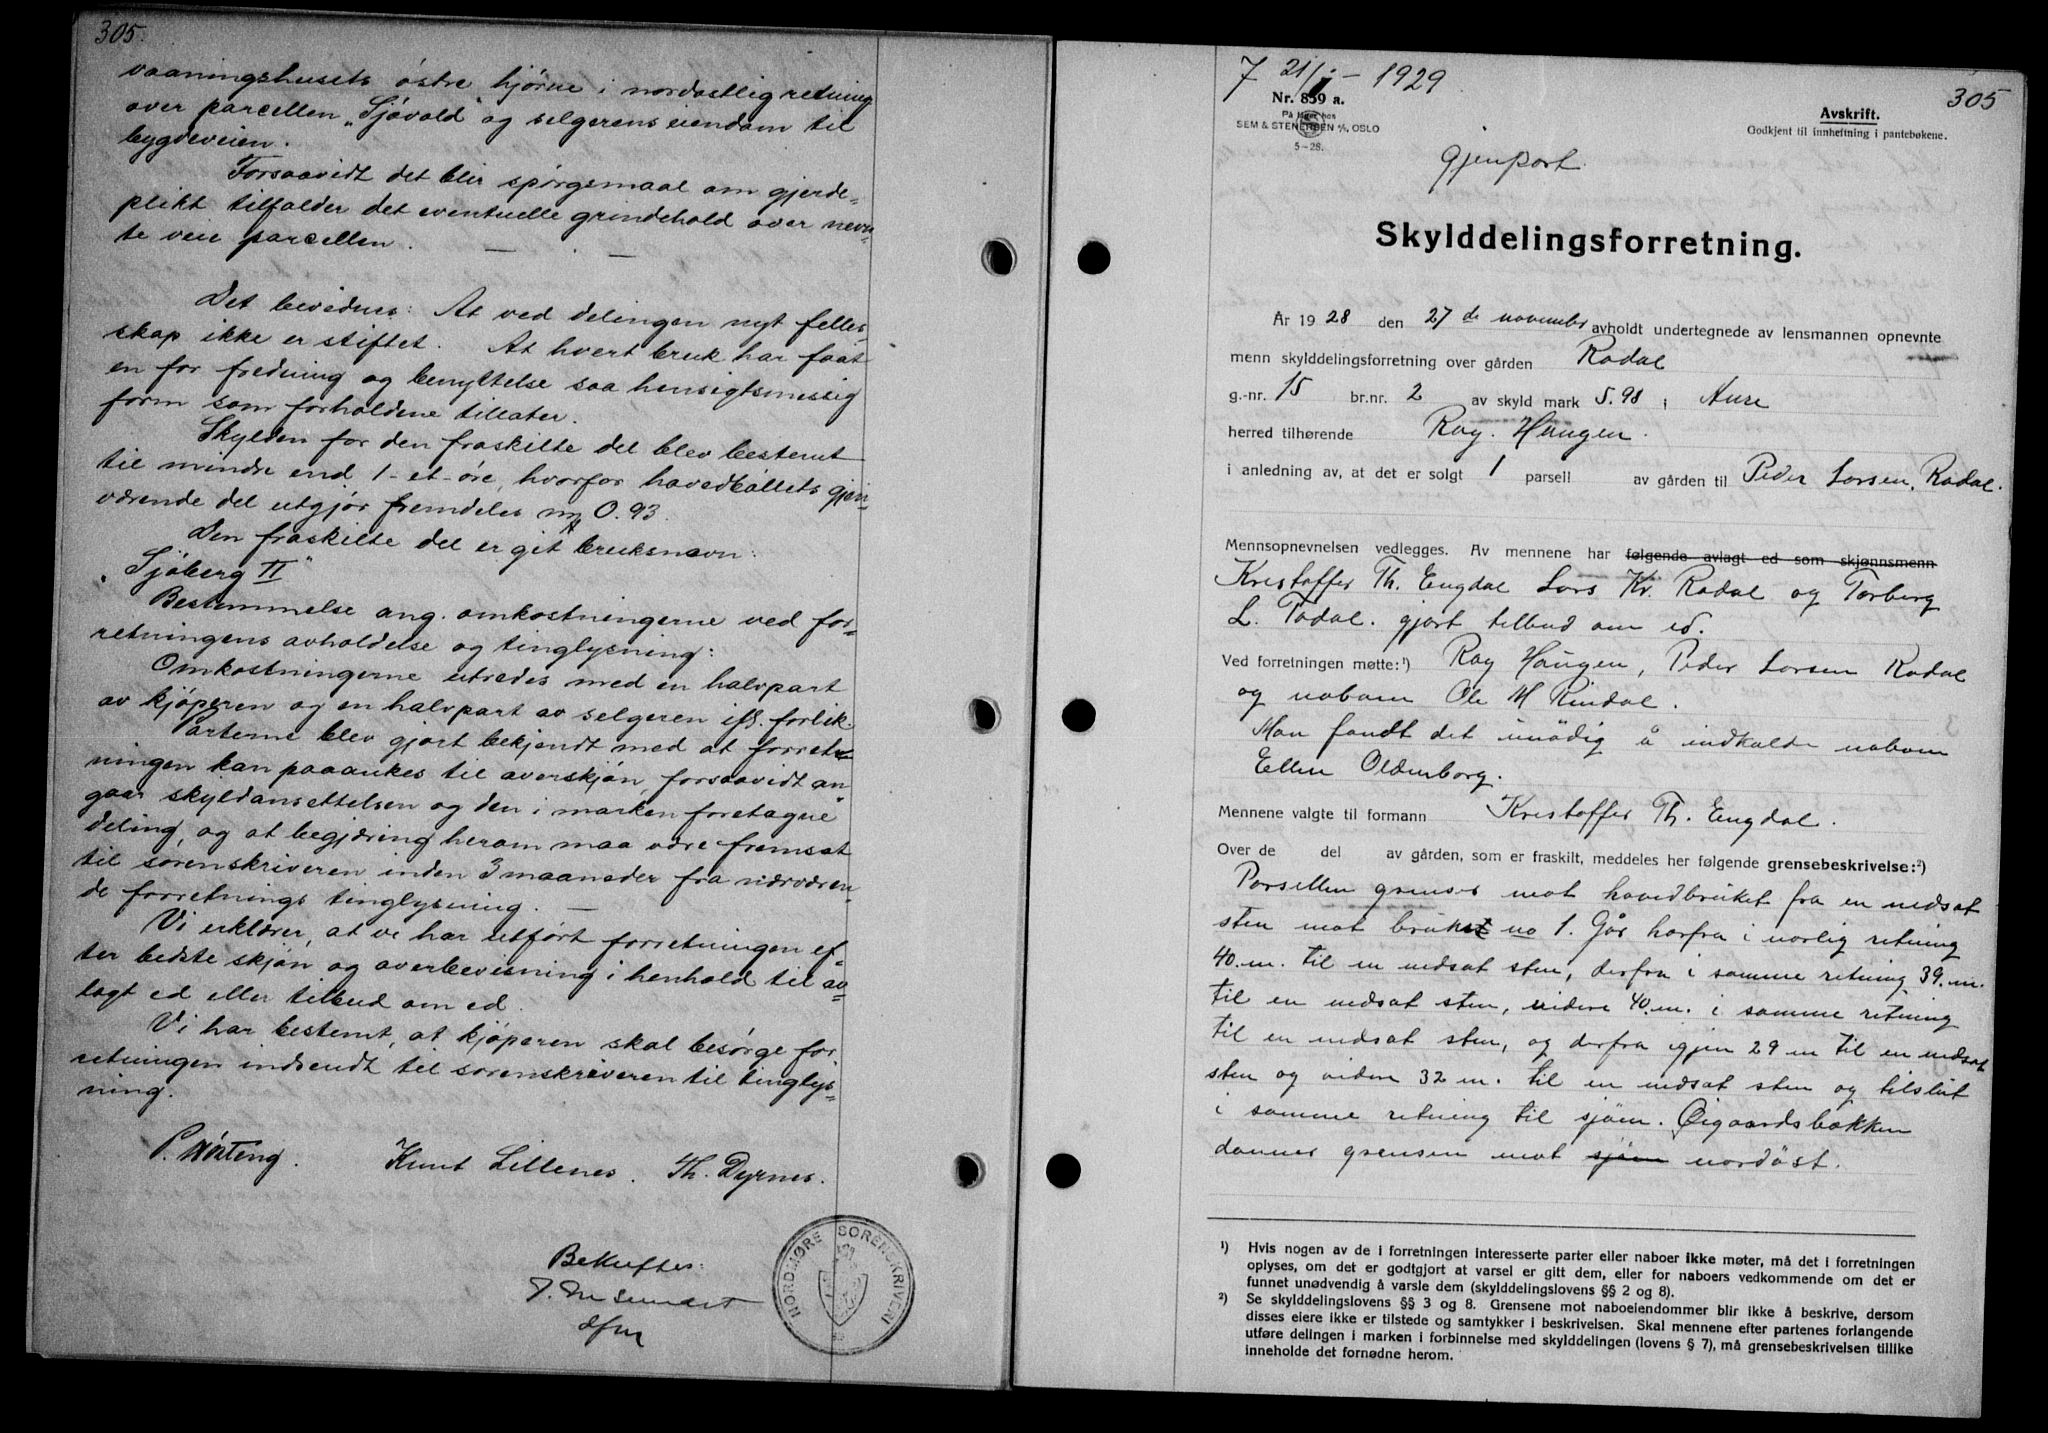 305.
vaaningshusets østre hjørne i nordøstlig retning
over parcellen „Sjøvold" og selgerens eiendom til
bygdeveien.
Forsaavidt det blir spørgsmaal om gjerde-
plikt tilfalder det eventuelle grindehold over nevn-
te vei parcellen.
Det bevidnes: At ved delingen nyt felles-
skap ikke er stiftet. At hvert bruk har faat
en for fredning og benyttelse saa hensigtsmessig
form som forholdene tillater.
Skylden for den fraskilte del blev bestemt
til mindre end 1 - et - øre, hvorfor hovedbøllets gjen-
værende del utgjør fremdeles m 0.93.
Den fraskilte del er git bruksnavn:
„Sjøberg II"
Bestemmelse ang. omkostningerne ved for-
retningens avholdelse og tinglysning:
Omkostningerne utredes med en halvpart
av kjøperen og en halvpart av selgeren ifl. forlik.
Parterne blev gjort bekjendt med at forret-
ningen kan paaankes til overskjøn, forsaavidt an-
gaar skyldansettelsen og den i marken foretagne
deling, og at begjæring herom maa være fremsat
til sorenskriveren inden 3 maaneder fra nærværen-
de forretnings tinglysning.
Vi erklærer, at vi har utført forretningen ef-
ter bedste skjøn og overbevisning i henhold til av-
lagt ed eller tilbud om ed.
Vi har bestemt, at kjøperen skal besørge for-
retningen indsendt til sorenskriveren til tinglys-
ning.
P. Nørteng. Knut Lillenes. Th. Dyrnes.
Bekreftes:
NORDMØRE SORENSKRIVERI
7 21/1 - 1929
305
Nr. 859 a.
På lager hos
SEM & STENERSEN A/S, OSLO
5-28.
Avskrift.
Godkjent til innheftning i pantebøkene.
Gjenpart.
Skylddelingsforretning.
År 1928 den 27de november avholdt undertegnede av lensmannen opnevnte
menn skylddelingsforretning over gården Rodal
g.-nr. 15 br.nr. 2 av skyld mark 5.98 i Aure
herred tilhørende Roy. Haugen.
i anledning av, at det er solgt 1 parsell av gården til Peder Larsen, Rodal.
Mennsopnevnelsen vedlegges. Av mennene har følgende avlagt ed som skjønnsmenn
Kristoffer Th. Engdal Lars Kr. Rodal og Torberg
L. Todal. gjort tilbud om ed.
Ved forretningen møtte:¹) Roy Haugen, Peder Larsen Rodal
og naboen Ole M Rindal.
Man fandt det unødig å indkalde naboen
Ellen Oldenborg.
Mennene valgte til formann Kristoffer Th. Engdal.
Over de del av gården, som er fraskilt, meddeles her følgende grensebeskrivelse:²)
Parsellen grenser mot hovedbruket fra en nedsat
sten mot bruket no 1. Går herfra i norlig retning
40.m. til en nedsat sten, derfra i samme retning 39.m.
til en nedsat sten, videre 40.m. i samme retning
til en nedsat sten, og derfra igjen 29 m til en nedsat
sten og viden 32 m. til en nedsat sten og tilslut
i samme retning til sjøen. Øigaardsbækken
danner grensen mot sjøen nordøst.
¹) Hvis nogen av de i forretningen interesserte parter eller naboer ikke møter, må det i forretningen
oplyses, om det er godtgjort at varsel er gitt dem, eller for naboers vedkommende om det er
funnet unødvendig å varsle dem (skylddelingslovens §§ 2 og 8).
²) Se skylddelingslovens §§ 3 og 8. Grensene mot naboeiendommer blir ikke å beskrive, dersom
disses eiere ikke er tilstede og samtykker i beskrivelsen. Skal mennene efter partenes forlangende
utføre delingen i marken i forbinnelse med skylddelingen (lovens § 7), må grensebeskrivelsen tillike
inneholde det fornødne herom.